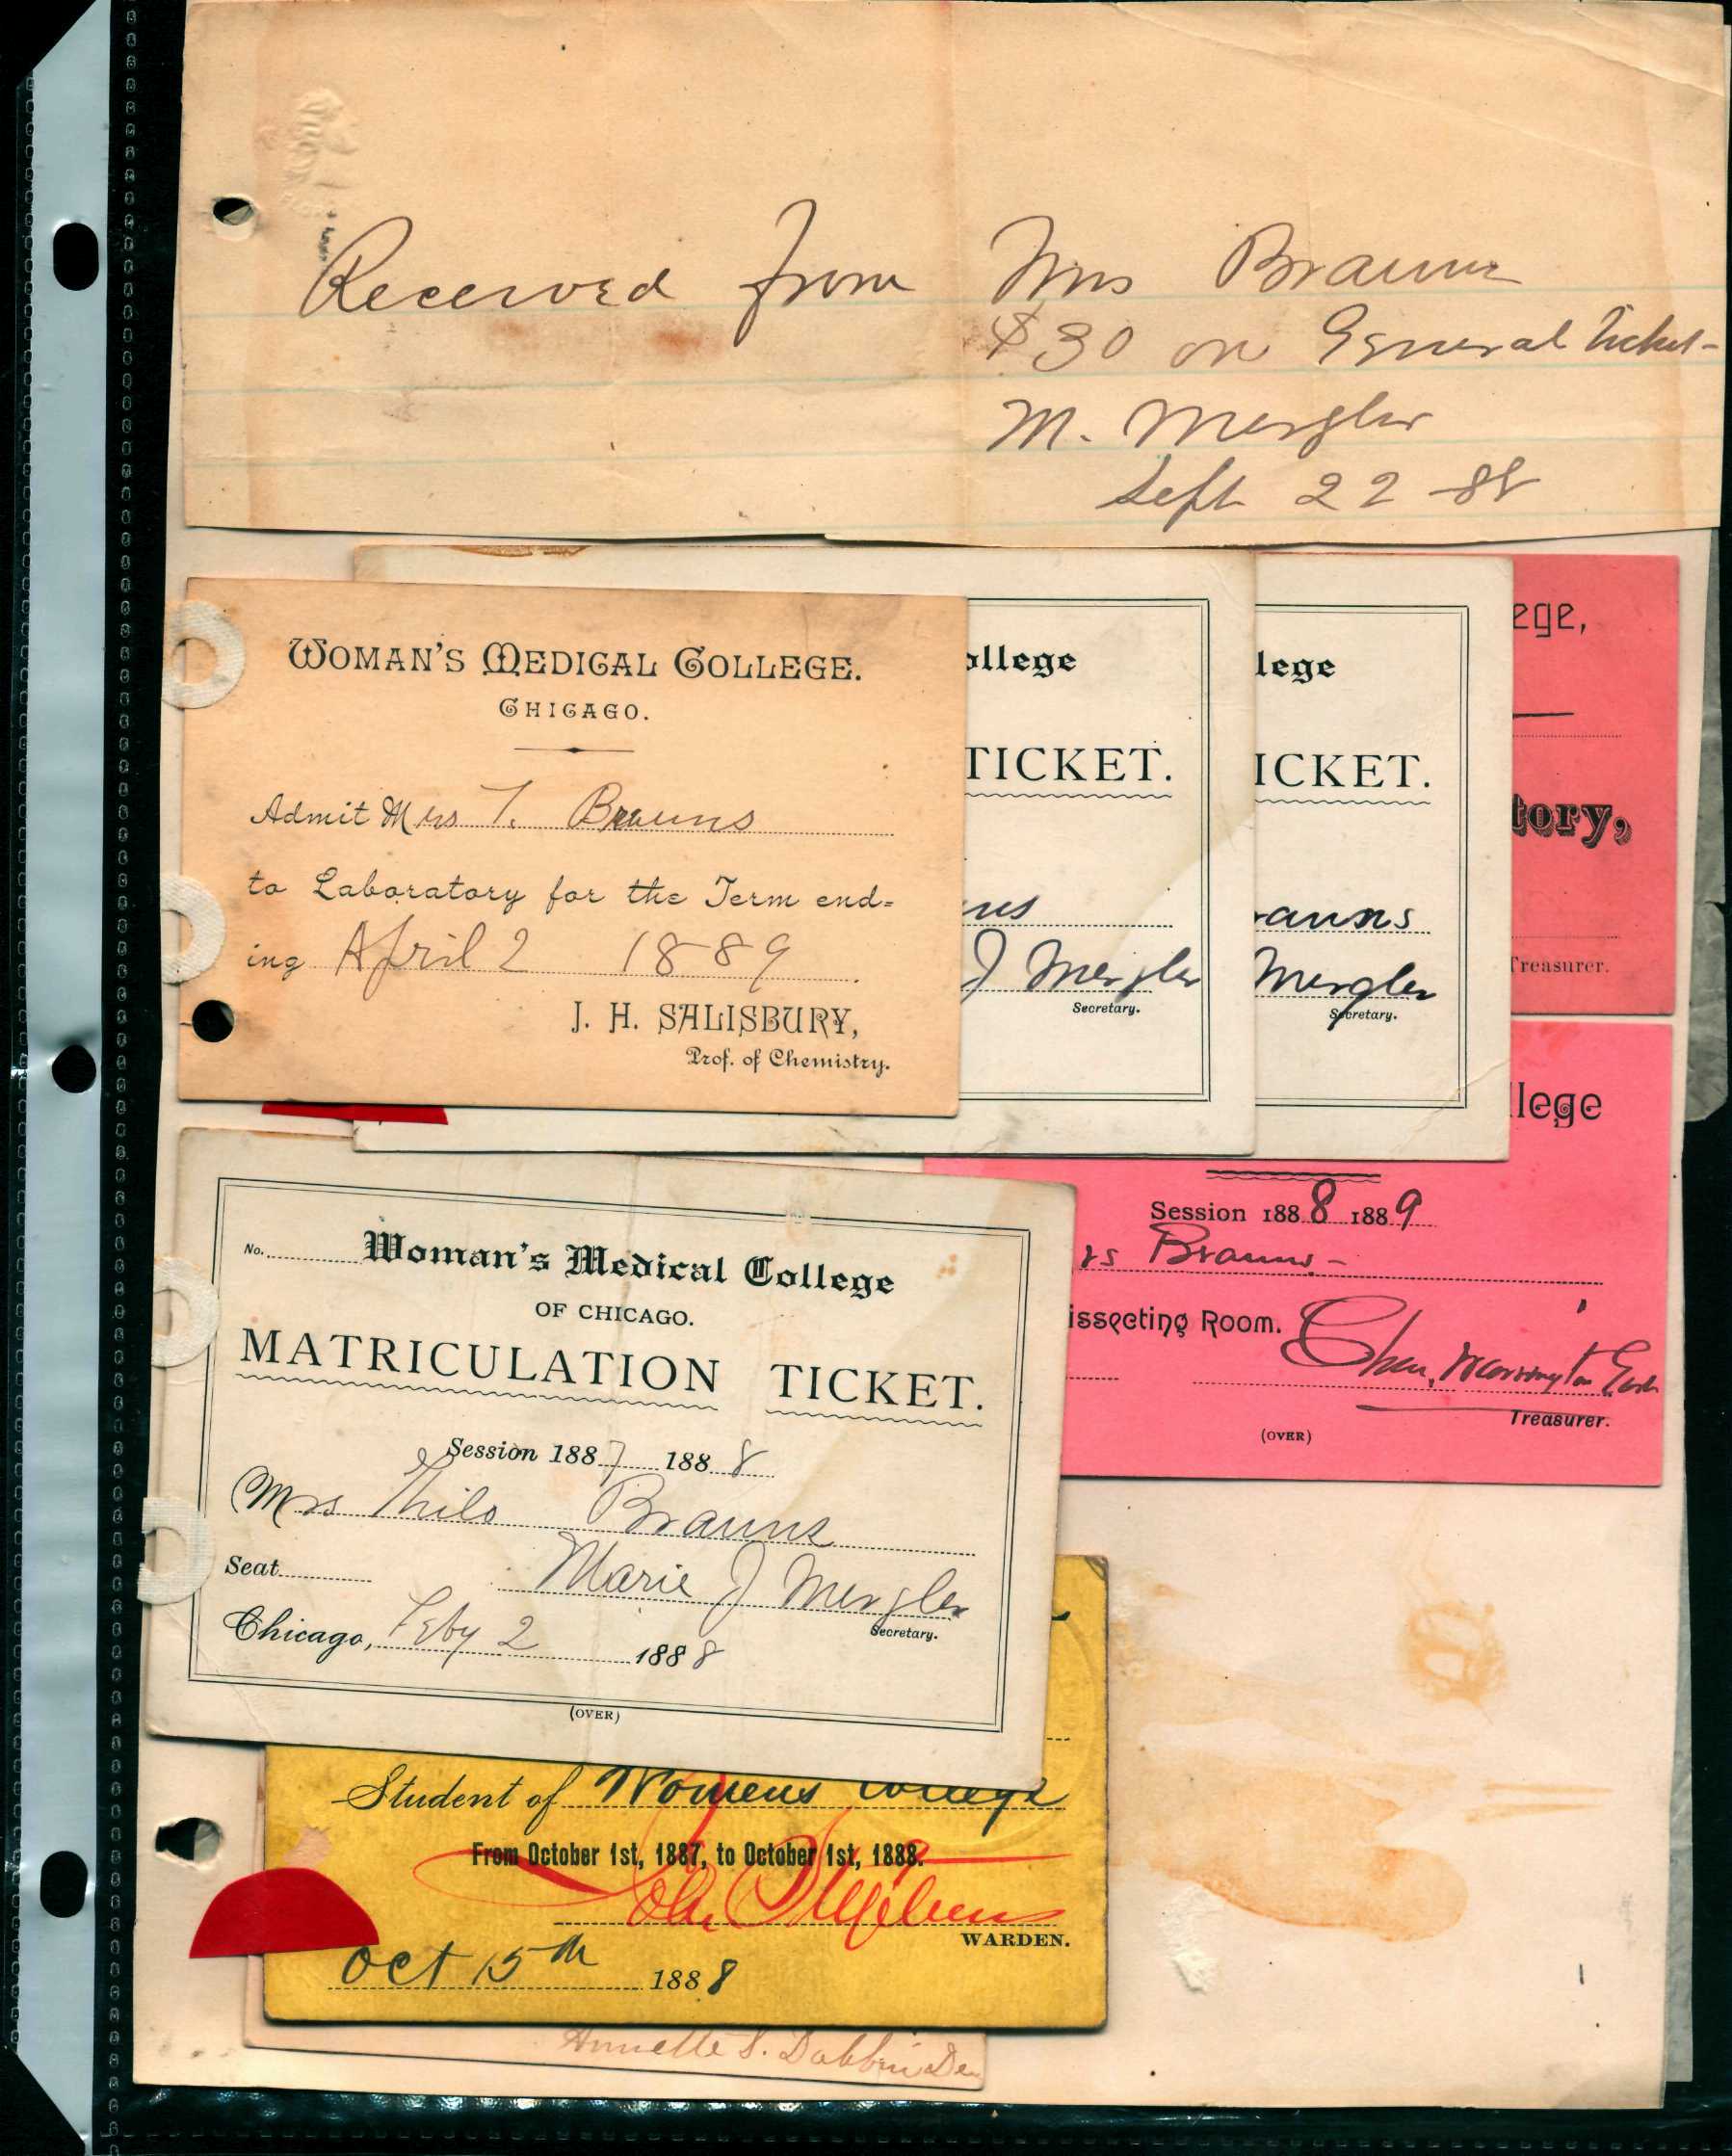 Received from Mrs Brauns
$30 on General Ticket-
M. Mergler
Sept 22 -88
WOMAN'S MEDICAL COLLEGE.
CHICAGO.
Admit Mrs T. Brauns
to Laboratory for the Term end=
ing April 2 1889
J. H. SALISBURY,
Prof. of Chemistry.
ollege
TICKET.
ns
J Mergler
Secretary.
lege
ICKET.
rauns
Mergler
Secretary.
ege,
tory,
Treasurer.
llege
Session 1888 1889
rs Brauns-
issecting Room.
Treasurer.
(OVER)
No. Woman's Medical College
OF CHICAGO.
MATRICULATION TICKET.
Session 1887 1888
Mrs Thilo Brauns
Seat Marie J Mergler
Secretary.
Chicago, Feby 2 1888
(OVER)
Student of Womens College
From October 1st, 1887, to October 1st, 1888.
WARDEN.
Oct 15th 1888
Annette S. Dobbin